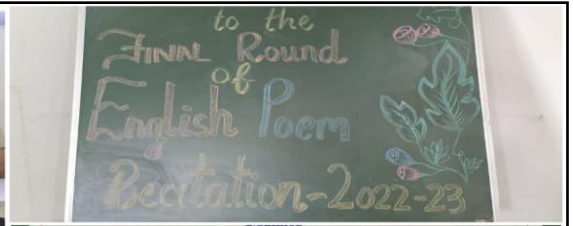 to the
FINAL Round
of
English Poem
Recitation-2022-23